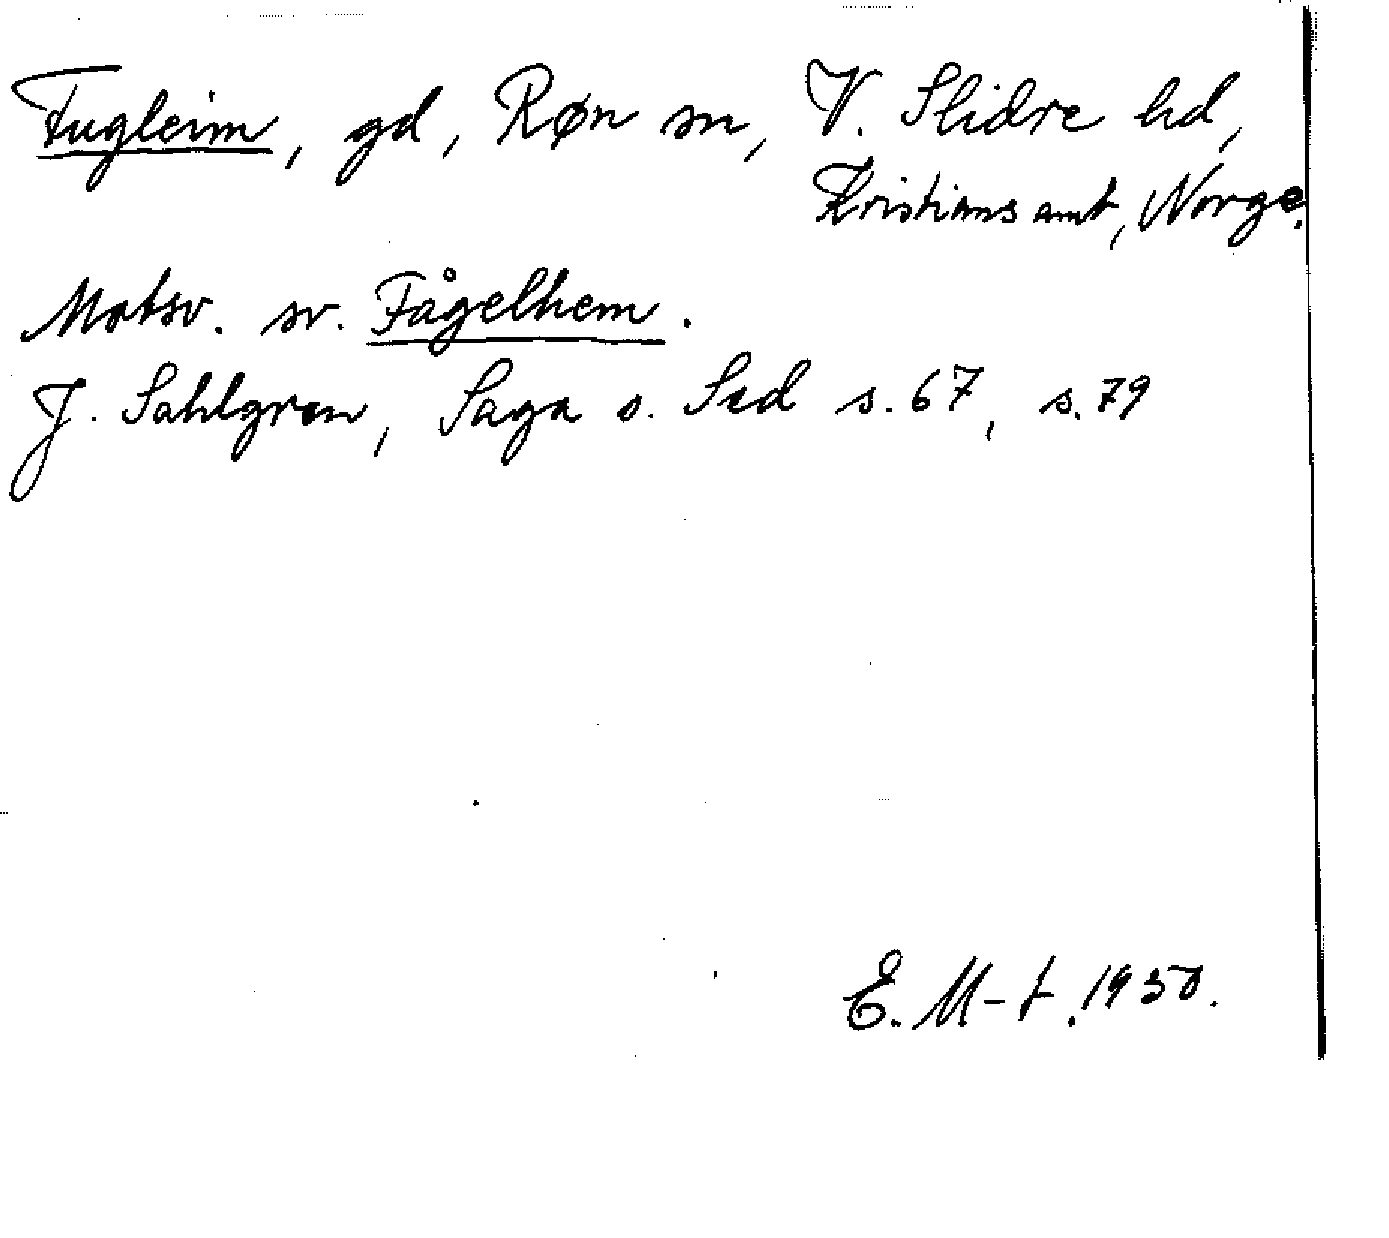 Fugleim, gd, Røn sn, V. Slidre hd,
Kristians amt, Norge.
Motsv. sv. Fågelhem.
J. Sahlgren, Saga o. Sed s. 67, s. 79
E. M-t. 1930.